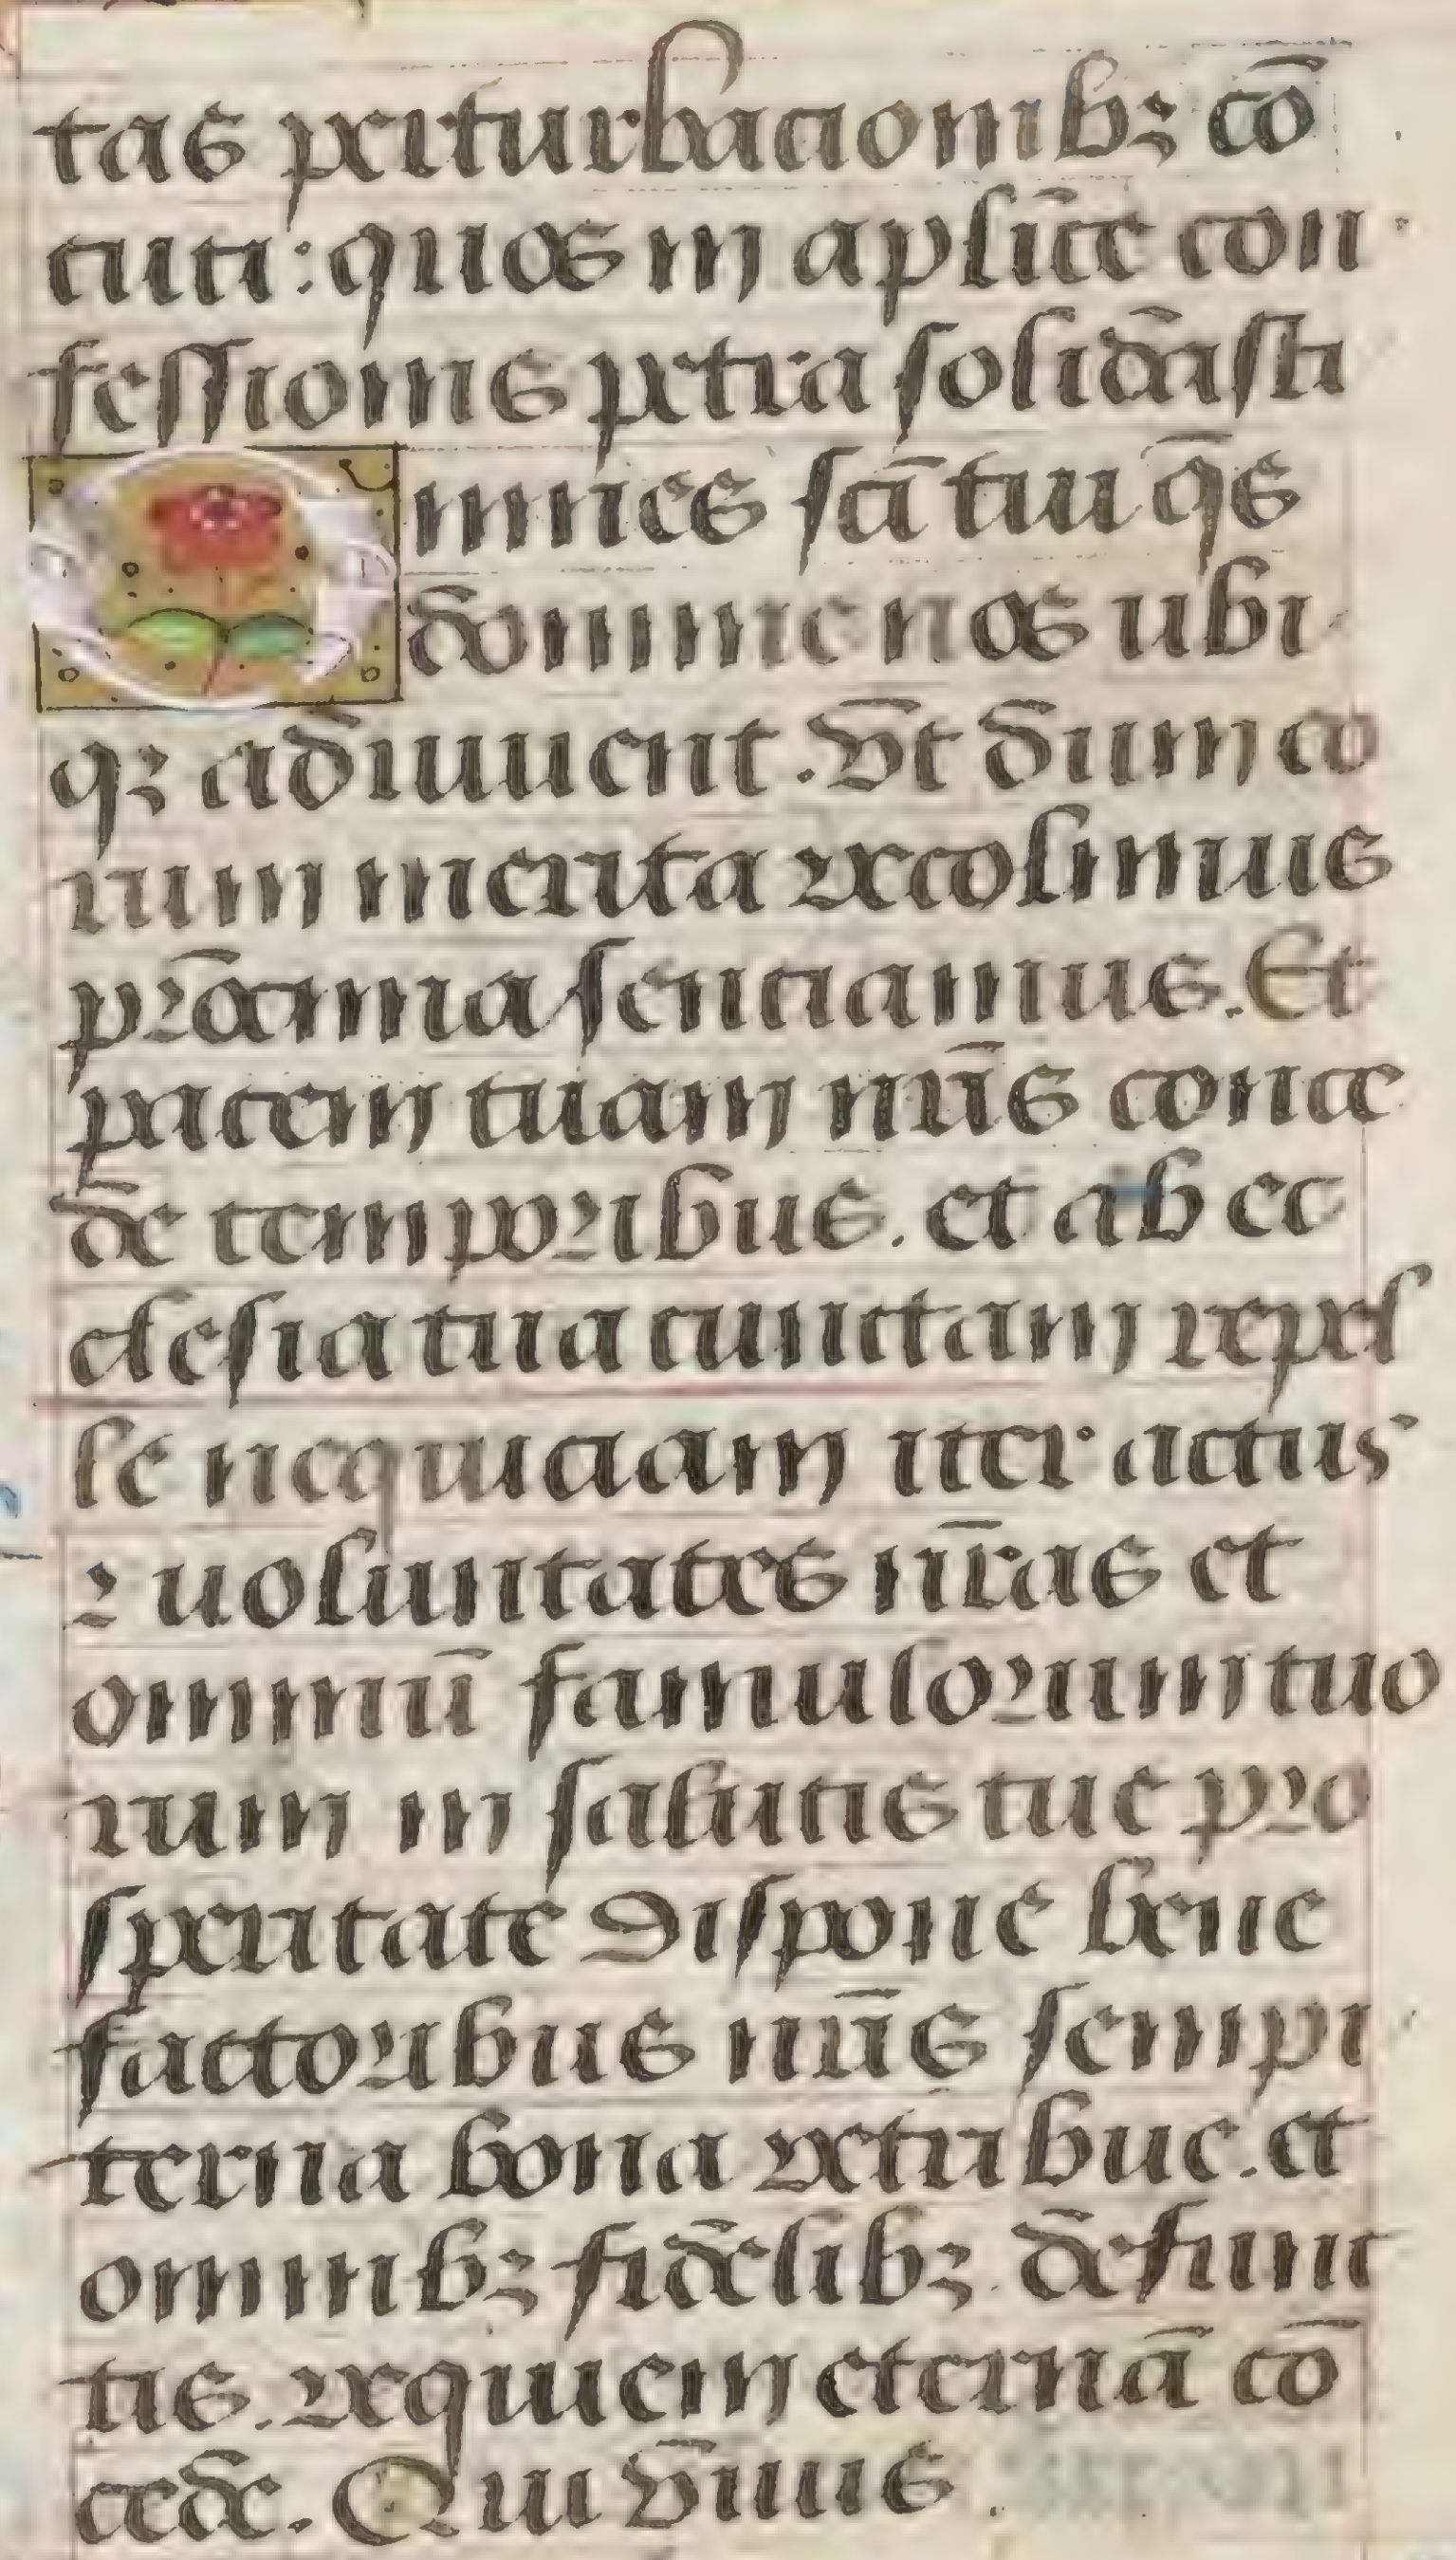 tas perturbacionibꝫ cō
cuti: quos in aplīce con
fessionis petra solidasti
Omnes scī tui qs̄
domine nos ubi
qꝫ adiuuent. Vt dum eo
rum merita recolimus
patrocinia senciamus. Et
pacem tuam nrīs conce
de temporibus. et ab ec
clesia tua cunctam repel
le nequiciam iter actus
⁊ uoluntates nr̄as et
omniū famulorum tuo
rum in salutis tue pro
speritate dispone bene
factoribus nrīs sempi
terna bona retribue. et
omnibꝫ fidelibꝫ defunc
tis. requiem eternā cō
cede. Qui viuis.